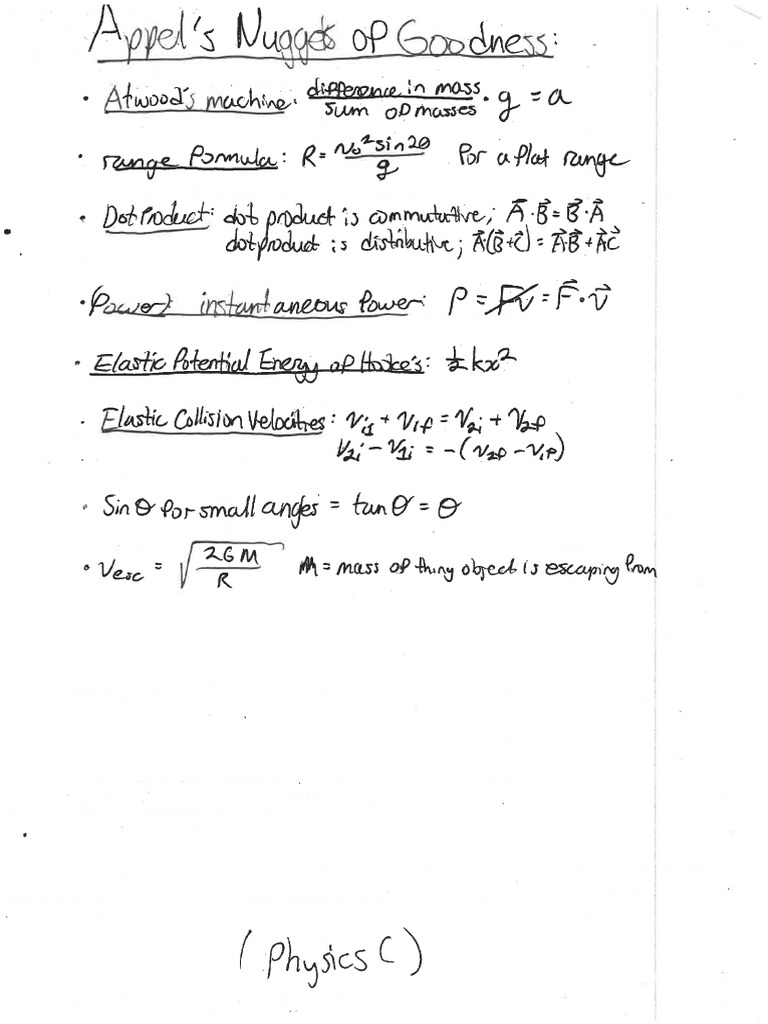 Appel's Nuggets of Goodness:
• Atwood's machine: difference in mass / sum of masses · g = a
• range formula: R = v₀² sin2θ / g for a flat range
• Dot Product: dot product is commutative; A⃗·B⃗ = B⃗·A⃗
dot product is distributive; A⃗(B⃗+C⃗) = A⃗B⃗ + A⃗C⃗
• (Power) instantaneous Power: P = Fv = F⃗·v⃗
• Elastic Potential Energy of Hooke's: ½kx²
• Elastic Collision Velocities: v₁ᵢ + v₁f = v₂ᵢ + v₂f
v₂ᵢ - v₁ᵢ = -(v₂f - v₁f)
• Sin θ for small angles = tan θ = θ
• Vesc = √(2GM / R) M = mass of thing object is escaping from
(Physics C)